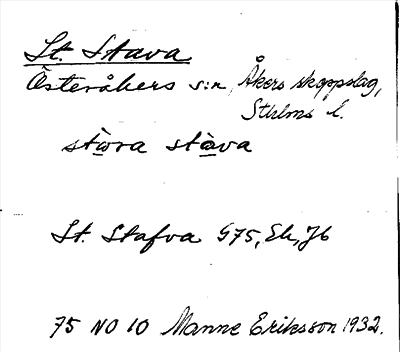 St. Stava
Österåkers s:n, Åkers skeppslag,
Sthlms l.
stora stava
St. Stafva G75, Ek, Jb
75 NO 10 Manne Eriksson 1932.